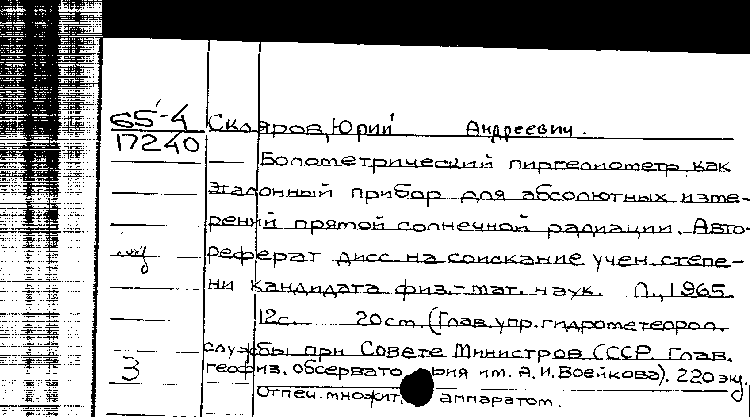 65-4
17240
Скляров, Юрий Андреевич.
Болометрический пиргелиометр как
эталонный прибор для абсолютных изме-
рений прямой солнечной радиации. Авто-
реферат дисс на соискание учен. степе-
ни кандидата физ.-мат. наук. Л., 1965.
12с. 20см. (Глав. упр. гидрометеорол.
службы при Совете Министров СССР. Глав.
геофиз. обсервато рия им. А. И. Воейкова). 220 экз.
Отпеч. множит. аппаратом.
3